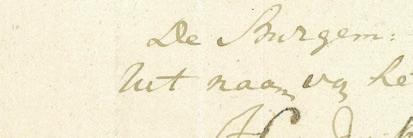 De Burgem:
Uit naam van he